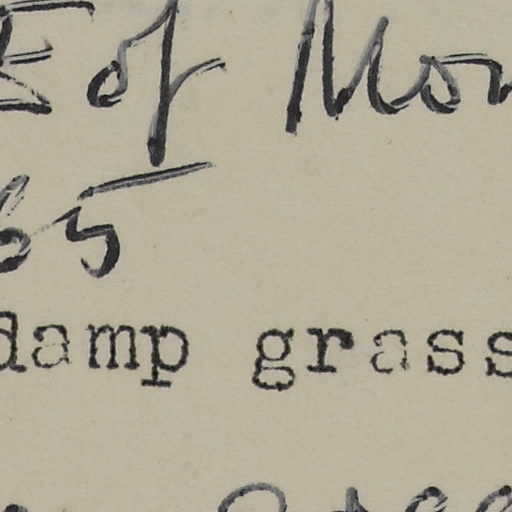 E of Mon
65
damp grass